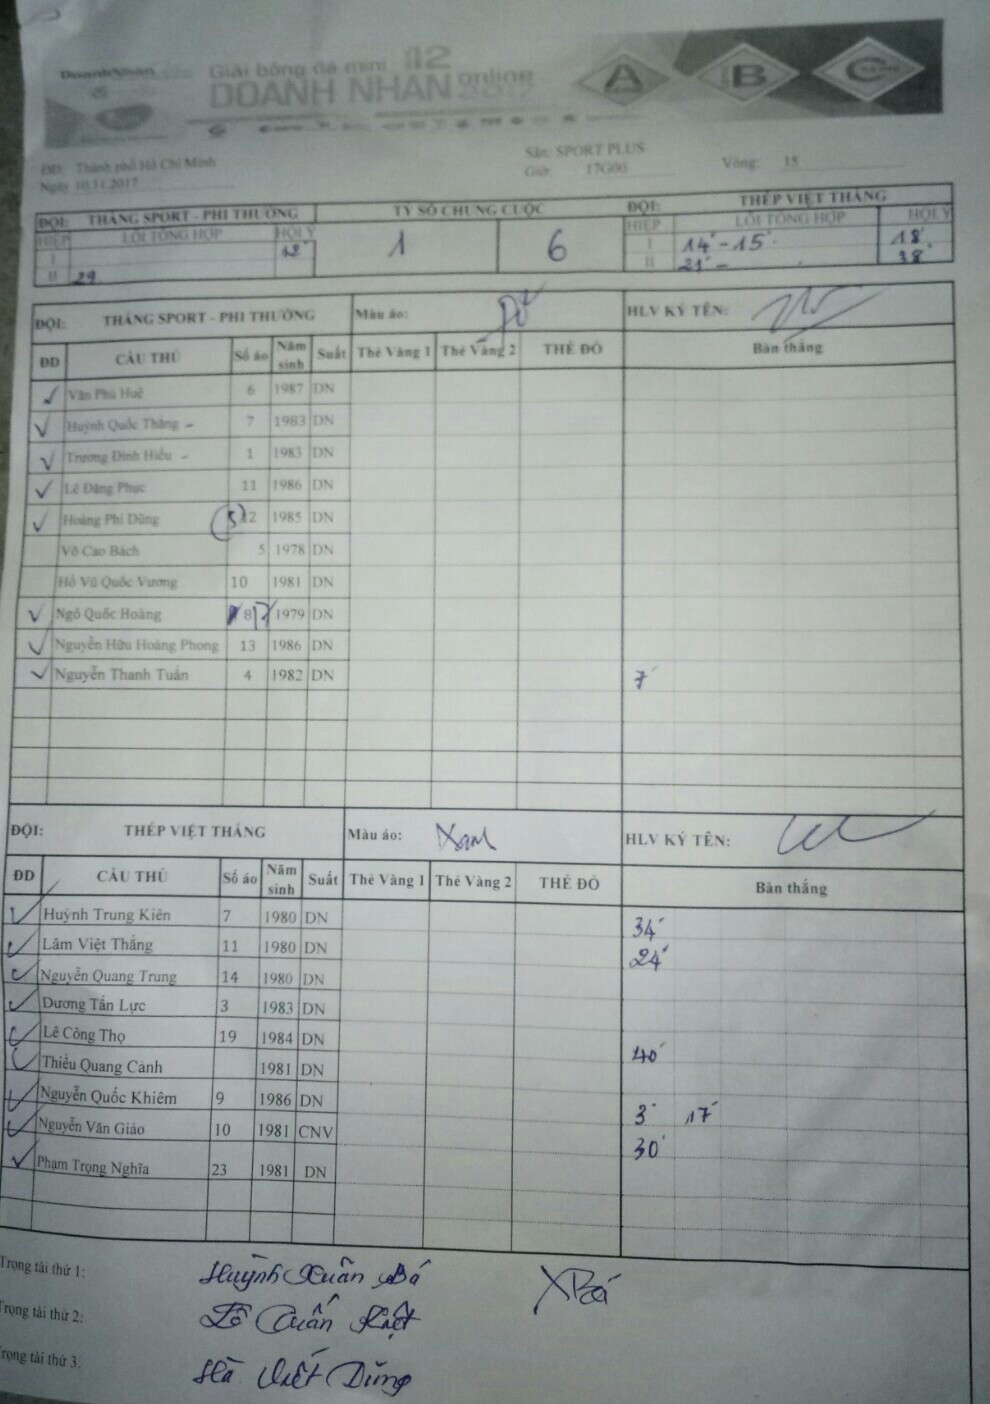 DoanhNhân
Giải bóng đá mini 12
DOANH NHÂN online 2017
A B C
ĐĐ: Thành phố Hồ Chí Minh Sân: SPORT PLUS
Ngày 10.11.2017 Giờ: 17G00 Vòng: 15
ĐỘI: THẮNG SPORT - PHI THƯỜNG TỶ SỐ CHUNG CUỘC ĐỘI: THÉP VIỆT THẮNG
HIỆP LỖI TỔNG HỢP HỘI Ý 1 6 HIỆP LỖI TỔNG HỢP HỘI Ý
I 12' I 14' - 15' 18'
II 29 II 21' - 38'
ĐỘI: THẮNG SPORT - PHI THƯỜNG Màu áo: Đỏ HLV KÝ TÊN:
ĐD CẦU THỦ Số áo Năm sinh Suất Thẻ Vàng 1 Thẻ Vàng 2 THẺ ĐỎ Bàn thắng
Văn Phú Huê 6 1987 DN
Huỳnh Quốc Thăng - 7 1983 DN
Trương Đình Hiếu - 1 1983 DN
Lê Đăng Phục 11 1986 DN
Hoàng Phi Dũng 12 1985 DN
Võ Cao Bách 5 1978 DN
Hồ Vũ Quốc Vương 10 1981 DN
Ngô Quốc Hoàng 8 17 1979 DN
Nguyễn Hữu Hoàng Phong 13 1986 DN
Nguyễn Thanh Tuấn 4 1982 DN 7'
ĐỘI: THÉP VIỆT THẮNG Màu áo: Xam HLV KÝ TÊN:
ĐD CẦU THỦ Số áo Năm sinh Suất Thẻ Vàng 1 Thẻ Vàng 2 THẺ ĐỎ Bàn thắng
Huỳnh Trung Kiên 7 1980 DN 34'
Lâm Việt Thắng 11 1980 DN 24'
Nguyễn Quang Trung 14 1980 DN
Dương Tấn Lực 3 1983 DN
Lê Công Thọ 19 1984 DN 40'
Thiều Quang Cảnh 1981 DN
Nguyễn Quốc Khiêm 9 1986 DN 3' 17'
Nguyễn Văn Giáo 10 1981 CNV 30'
Phạm Trọng Nghĩa 23 1981 DN
Trọng tài thứ 1: Huỳnh Xuân Bá XBá
Trọng tài thứ 2: Tuấn Kiệt
Trọng tài thứ 3: Hà Viết Dũng